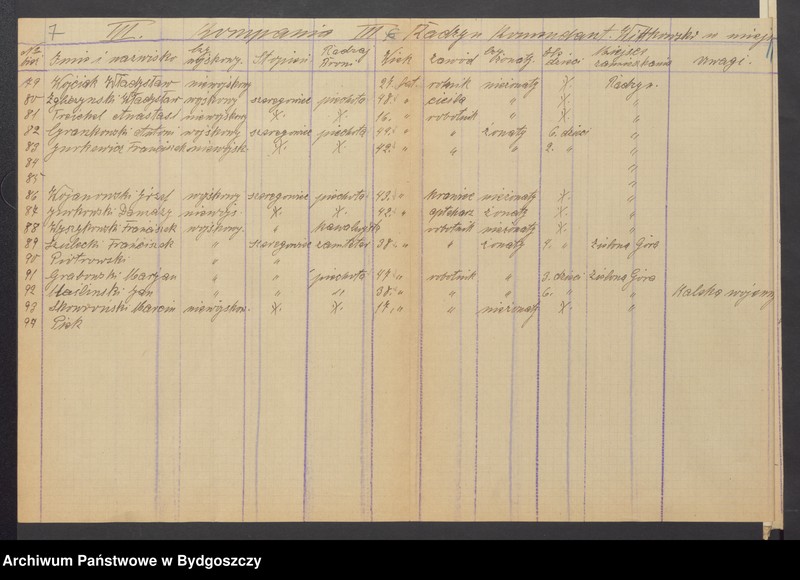 7 III. Kompania III Radzyn Komendant. Wittkowski w miejs
No bież Imię i nazwisko czy wojskowy. Stopień Rodzaj Broni Wiek zawód czy żonaty. Ilość dzieci Miejsce zamieszkania Uwagi.
79 Wojciak Władysław niewojskowy 21. lat. rolnik nieżonaty X. Radzyn.
80 Władysław wojskowy szeregowiec piechota 48. " cieśla " X. "
81 Treichel Anastazi niewojskowy X. X. 16. " robotnik " X. "
82 Antoni wojskowy szeregowiec piechota 44. " " żonaty 6. dzieci "
83 Jurkewicz Francisek niewojsk. X. X. 42. " " " 2. " "
84 "
85 "
86 Kojanowski Józef wojskowy szeregowiec piechota 43. " krawiec nieżonaty X. "
87 Jurkowski Damazy niewojs. X. X. 42. " aptekarz żonaty X. "
88 Wyszkowski Francisek wojskowy. " kawalerja robotnik nieżonaty X. "
89 Szulecki Francisek " szeregowiec 38. " " żonaty 9. " Zielona Góra
90 Piotrowski " "
91 Grabowski Marjan " " piechota 47. " robotnik " 3. dzieci Zielona Góra
92 Jan " " " 38. " " " 6. " " Kalska wojenny
93 Skowroński Marcin niewojskow. X. X. 17. " " nieżonaty X. "
94 Piek
Archiwum Państwowe w Bydgoszczy